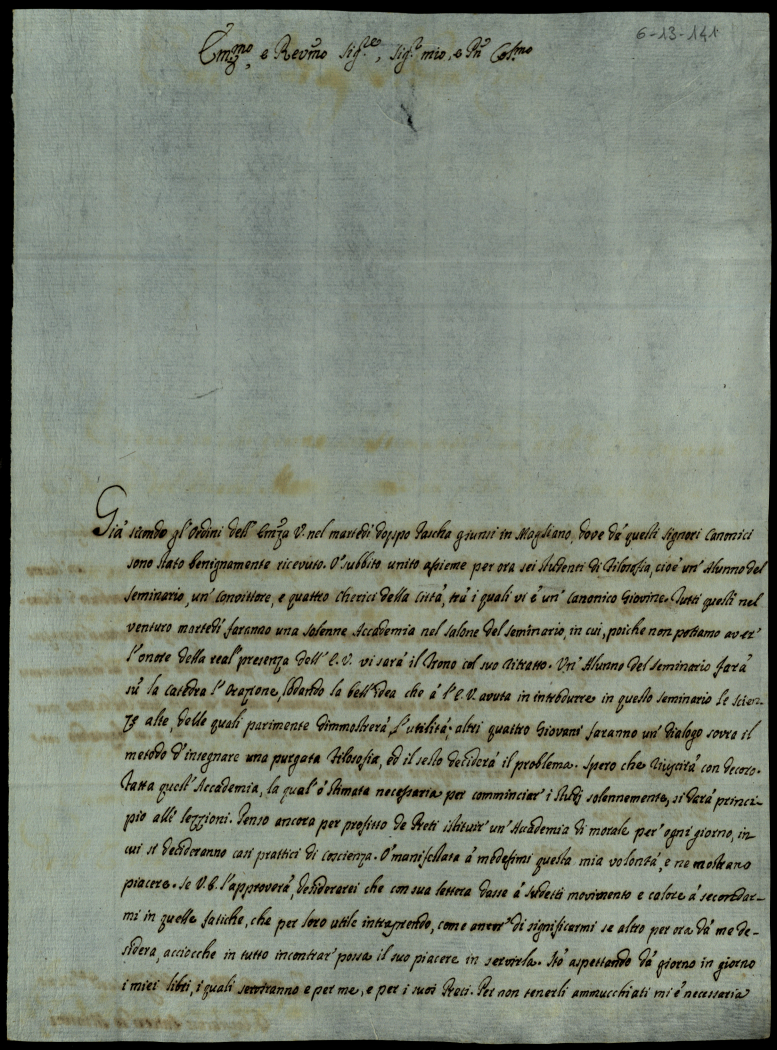 6-13-141
Em̃mo, e Revm̃o Sigre, Sigr mio, e Pñ Colmo
Già secondo gl'Ordini dell'Emza V. nel martedì doppo Pascha giunsi in Magliano, dove dà questi Signori Canonici
sono stato benignamente ricevuto. Ò subbito unito assieme per ora sei studenti di Filosofia, cioè un'Alunno del
seminario, un'Convittore, e quattro Cherici della Città, trà i quali vi è un'Canonico Giovine. Tutti questi nel
venturo martedì faranno una solenne Accademia nel salone del seminario, in cui, poiche non potiamo aver'
l'onore della real'presenza dell'E.V. vi sarà il Trono col suo Ritratto. Un'Alunno del seminario farà
sù la catedra l'Orazione, lodando la bell'Idea che à l'E.V. avuta in introdurre in questo seminario le scien-
ze alte, delle quali parimente dimmostrerà l'utilità. altri quattro Giovani faranno un'Dialogo sovra il
metodo d'insegnare una purgata Filosofia, ed il sesto deciderà il problema. Spero che riuscirà con decoro.
Fatta quest'Accademia, la qual'ò stimata necessaria per comminciar'i studj solennemente, si darà princi-
pio alle lezzioni. Penso ancora per profitto de Preti istituir'un'Accademia di morale per'ogni giorno, in
cui si decideranno casi prattici di Coscienza. Ò manifestata à medesimi questa mia volontà, e ne mostrano
piacere. Se V.E. l'approverà, desiderarei che con sua lettera dasse à sudetti movimento e calore à secondar-
mi in quelle fatiche, che per loro utile intraprendo, come ancor'di significarmi se altro per ora dà me de-
sidera, acciocche in tutto incontrar'possa il suo piacere in servirla. Stò aspettando dà giorno in giorno
i miei libri, i quali serviranno e per me, e per i suoi Preti. Per non tenerli ammucchiati mi è necessaria